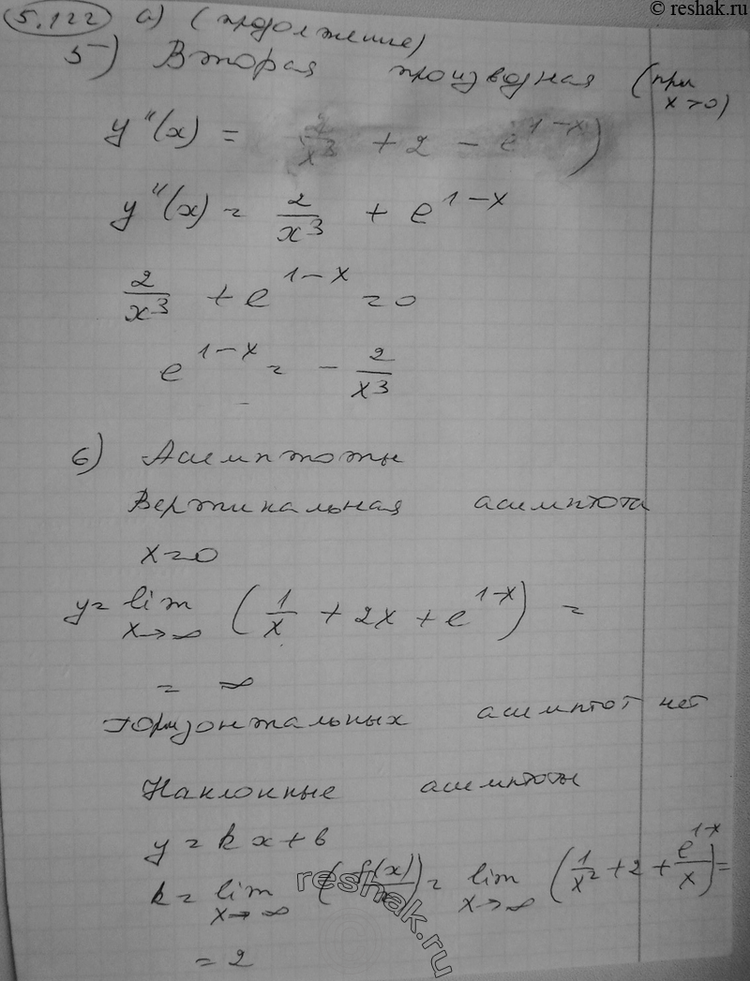 © reshak.ru
5.122 а) (продолжение)
5) Вторая производная (при x>0)
y''(x) = 2/x³ + 2 - e^(1-x))
y''(x) = 2/x³ + e^(1-x)
2/x³ + e^(1-x) = 0
e^(1-x) = - 2/x³
6) Асимптоты
Вертикальная асимптота
x=0
y= lim x→∞ (1/x + 2x + e^(1-x)) =
= ∞
горизонтальных асимптот нет
Наклонные асимптоты
y = kx + b
k = lim x→∞ (f(x)/x) = lim x→∞ (1/x² + 2 + e^(1-x)/x) =
= 2
reshak.ru